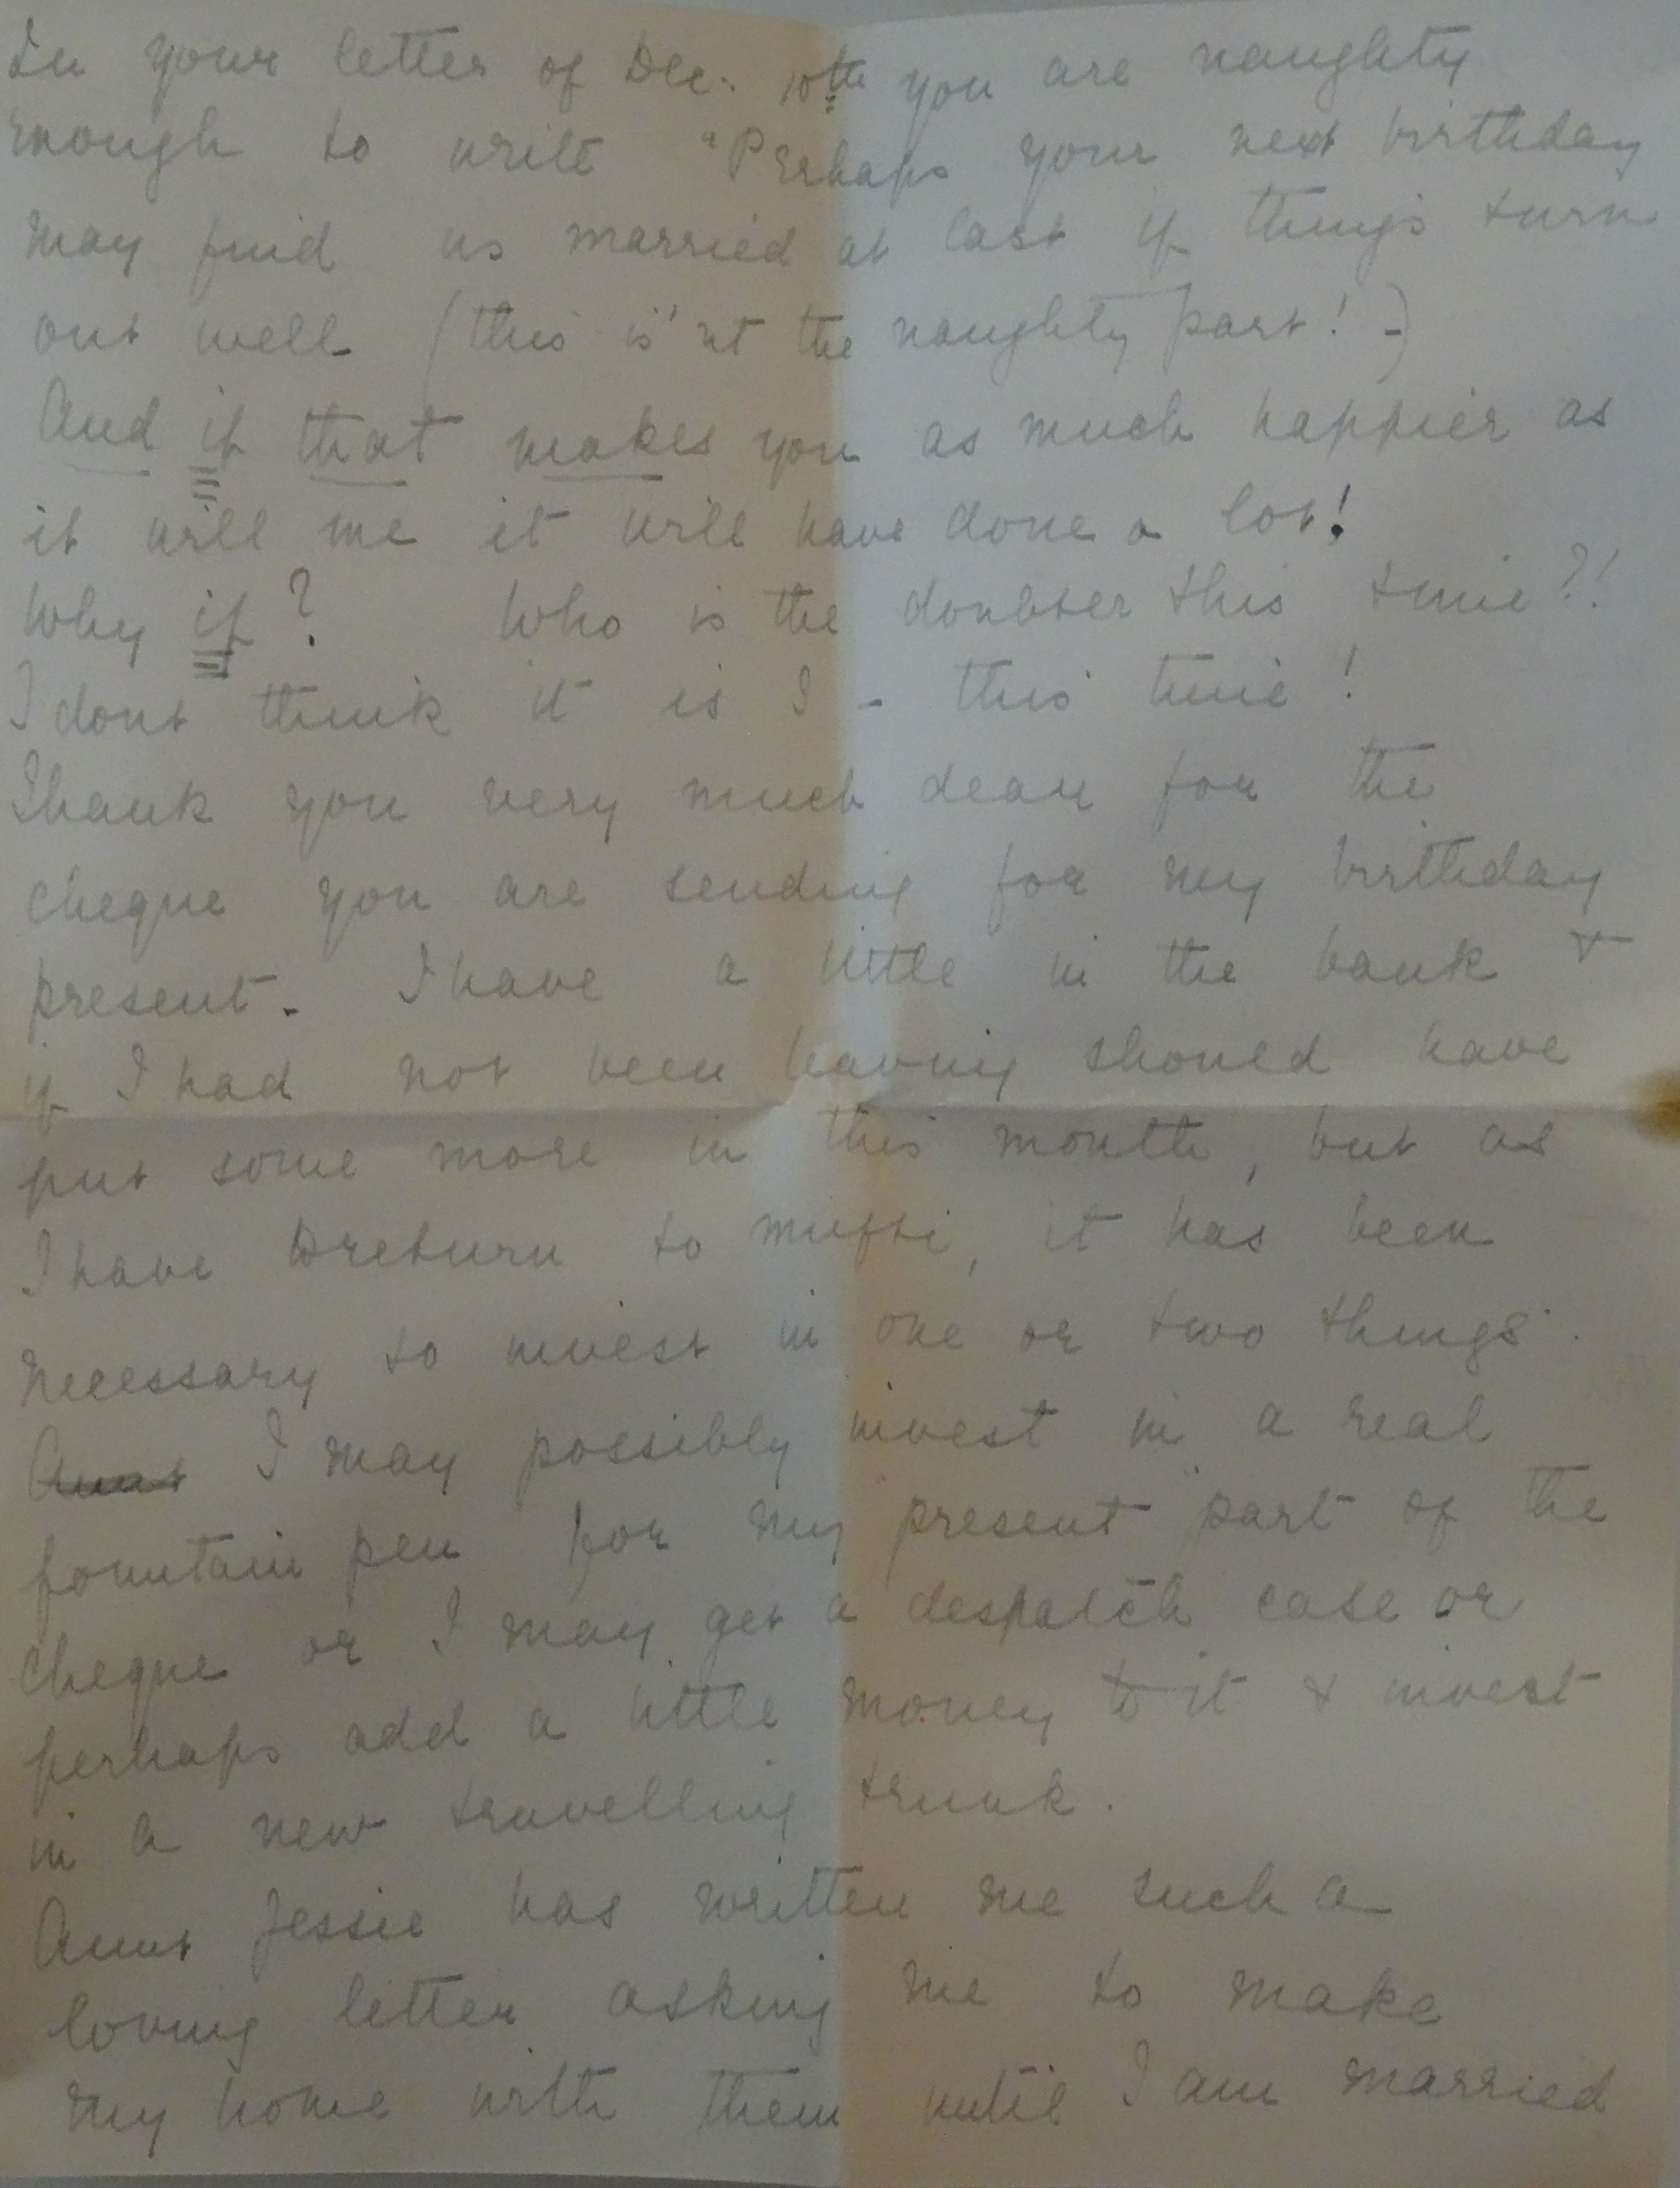 In your letter of Dec. 10th you are naughty
enough to write "Perhaps your next birthday
may find us married at last if things turn
out well (this is'nt the naughty part! -)
And if that makes you as much happier as
it will me it will have done a lot!
Why if? Who is the doubter this time?!
I dont think it is I - this time!
Thank you very much dear for the
cheque you are sending for my birthday
present. I have a little in the bank &
if I had not been leaving should have
put some more in this month, but as
I have to return to mufti, it has been
necessary to invest in one or two things.
Aunt I may possibly invest in a real
fountain pen for my "present" part of the
cheque or I may get a despatch case or
perhaps add a little money to it & invest
in a new travelling trunk.
Aunt Jessie has written me such a
loving letter asking me to make
my home with them until I am married